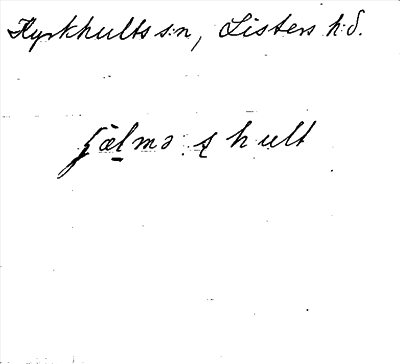 Kyrkhults sn, Listers h:d.
jælmə ʂ hult